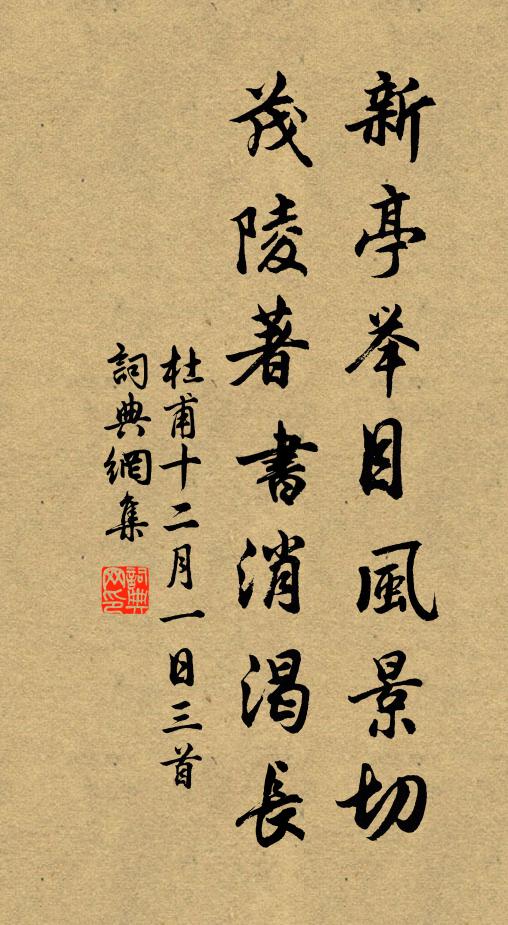 新亭举目風景切
茂陵著書消渴長
杜甫十二月一日三首
詞典網集
詞典网印